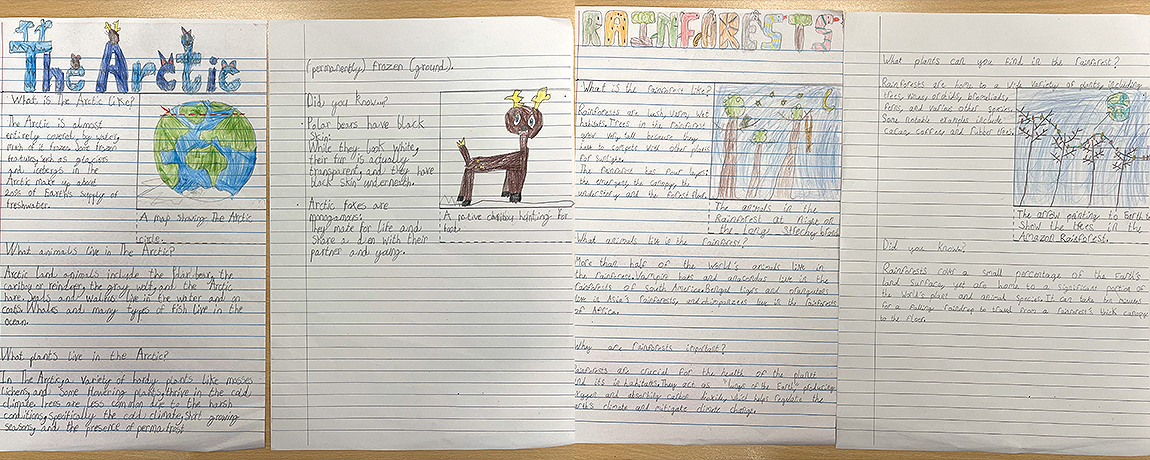 The Arctic
What is The Arctic Like?
The Arctic is almost
entirely covered by water,
much of it frozen. Some frozen
features, such as glaciers
and icebergs in the
Arctic make up about
20% of Earth's supply of
freshwater.
A map showing The Arctic
circle.
What animals live in The Arctic?
Arctic Land animals include the Polar bear, the
caribou or reindeer, the gray wolf, and the Arctic
hare. Seals and walrus live in the water and on
coats. Whales and many types of fish live in the
ocean.
What plants live in the Arctic?
In The Arctic, a variety of hardy plants like mosses
lichens, and some flowering plants, thrive in the cold
climate. Trees are less common due to the harsh
conditions, specifically the cold climate, short growing
seasons, and the presence of permafrost
(permanently) frozen (ground).
Did you know...?
Polar bears have black
skin.
While they look white,
their fur is actually
transparent, and they have
black skin underneath.
Arctic foxes are
monogamers.
They mate for life and
share a den with their
partner and young.
A native caribou hunting for
food.
RAINFORESTS
What is the rainforest like?
Rainforests are lush, warm, wet
habitats. Trees in the rainforest
grow very tall because they
have to compete with other plants
for sunlight.
The rainforest has four layers
the emergent, the canopy the
understory and the forest floor.
The animals in the
Rainforest at night on
the long, strechy branch
What animals live in the rainforest?
More than half of the world's animals live in
the rainforest. Vampire bats and anacondas live in the
rainforests of South America. Bengal tigers and orangutans
live in Asia's rainforests, and chimpanzees live in the rainforests
of Africa.
Why are rainforests important?
Rainforests are crucial for the health of the planet
and it's inhabitants. They act as "lungs of the Earth" producing
oxygen and absorbing carbon dioxide, which helps regulate the
earth's climate and mitigate climate change.
What plants can you find in the rainforest?
Rainforests are home to a wide variety of plants including
trees, vines, orchids, bromeliads,
ferns, and various other species.
Some notable examples include
cacao, coffee and rubber trees.
The arrow pointing to Earth to
Show the trees in the
Amazon Rainforest.
Did you know?
Rainforests cover a small percentage of the Earth's
land surface, yet are home to a significant portion of
the world's plant and animal species. It can take ten minutes
for a falling raindrop to travel from a rainforest's thick canopy
to the floor.